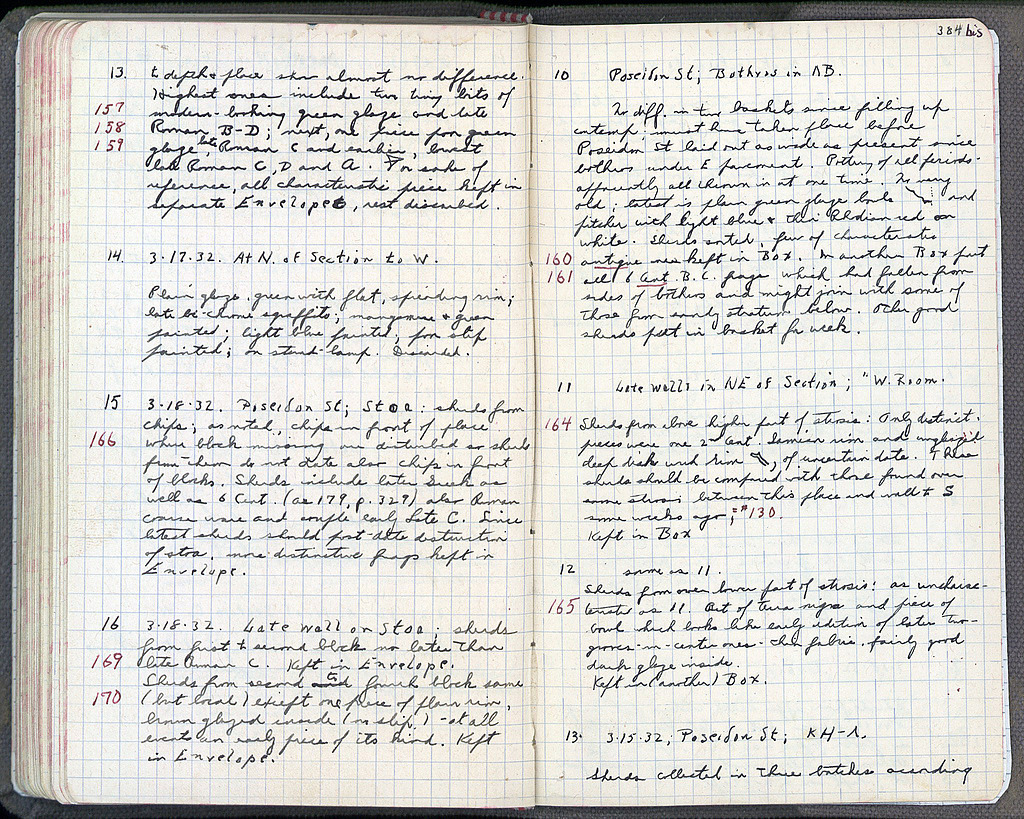 13. to depth & place show almost no difference.
Highest ones include two tiny bits of
157 modern-looking green glaze and late
158 Roman B-D; next, one piece poor green
159 glaze, late Roman C and earlier, lowest
late Roman C, D and A. For sake of
reference, all characteristic pieces kept in
separate Envelopes, rest discarded.
14. 3.17.32. At N. of Section to W.
Plain glaze, green with flat, spreading rim;
late bi-chrome sgraffito; manganese & green
painted; light blue painted, poor slip
painted; on stand-lamp. Discarded.
15 3.18.32. Poseidon St; Stoa: sherds from
chips; as noted, chips in front of place
166 where block missing were disturbed so sherds
from them do not date also chips in front
of blocks. Sherds include later Greek as
well as 6 Cent. (as 179, p. 327) also Roman
coarse ware and couple early Late C. Since
latest sherds should post-date destruction
of stoa, more distinctive frags kept in
Envelope.
16 3.18.32. Late wall on Stoa; sherds
from first to second block no later than
169 late Roman C. Kept in Envelope.
Sherds from second to fourth block same
170 (but local) except one piece of plain rim,
brown glazed inside (no slip) - at all
events an early piece of its kind. Kept
in Envelope.
384 bis
10 Poseidon St; Bothros in ΛB.
No diff. in two baskets since filling up
contemp.; must have taken place before
Poseidon St laid out as wide as present since
bothros under E pavement. Pottery of all periods -
apparently all thrown in at one time. No very
old; latest is plain green glaze bowls and
pitcher with light blue & thin Rhodian red on
white. Sherds sorted, few of characteristic
160 antique ones kept in Box. In another Box put
161 all 6 Cent. B.C. frags which had fallen from
sides of bothros and might join with some of
those from sandy stratum below. Other good
sherds put in basket for week.
11 Late walls in NE of Section; "W. Room.
164 Sherds from above higher part of strosis: Only distinct.
pieces were one 2nd Cent. Samian rim and unglazed
deep dish with rim, of uncertain date. These
sherds should be compared with those found over
same strosis between this place and wall to S
some weeks ago; = #130.
Kept in Box
12 same as 11.
Sherds from over lower part of strosis: as uncharac-
165 teristic as 11. Bit of terra nigra and piece of
bowl which looks like early edition of later two-
grooves-in-center ones - thin fabric, fairly good
dark glaze inside.
Kept in (another) Box.
13. 3.15.32; Poseidon St; KH-Λ.
Sherds collected in three batches according